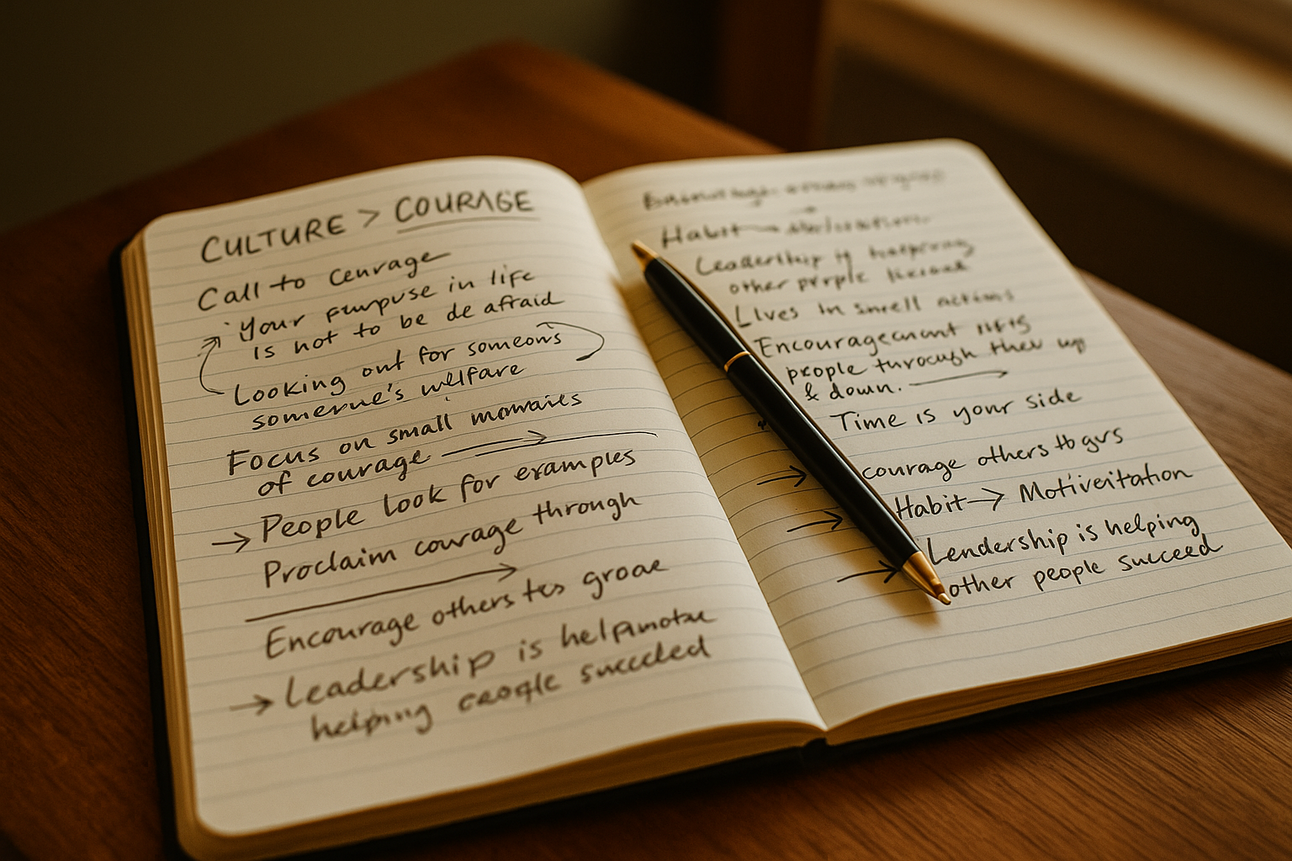 CULTURE > COURAGE
Call to cenrage
your purpuse in life
is not to be de afraid
Looking out for someons
somerue's wilfare
Focus on small momaies
of courage
→ People look for examples
Proclaim courage through
Encourage others tes groae
→ Leadership is helpmotue
helping ceogle succeled
Habit
Leadership is
other
Lives in smell actions
Encouragement
people through they up
& down.
Time is your side
→ courage others to gvs
→ Habit → Motiveitation
→ Lendership is helping
other people succeed